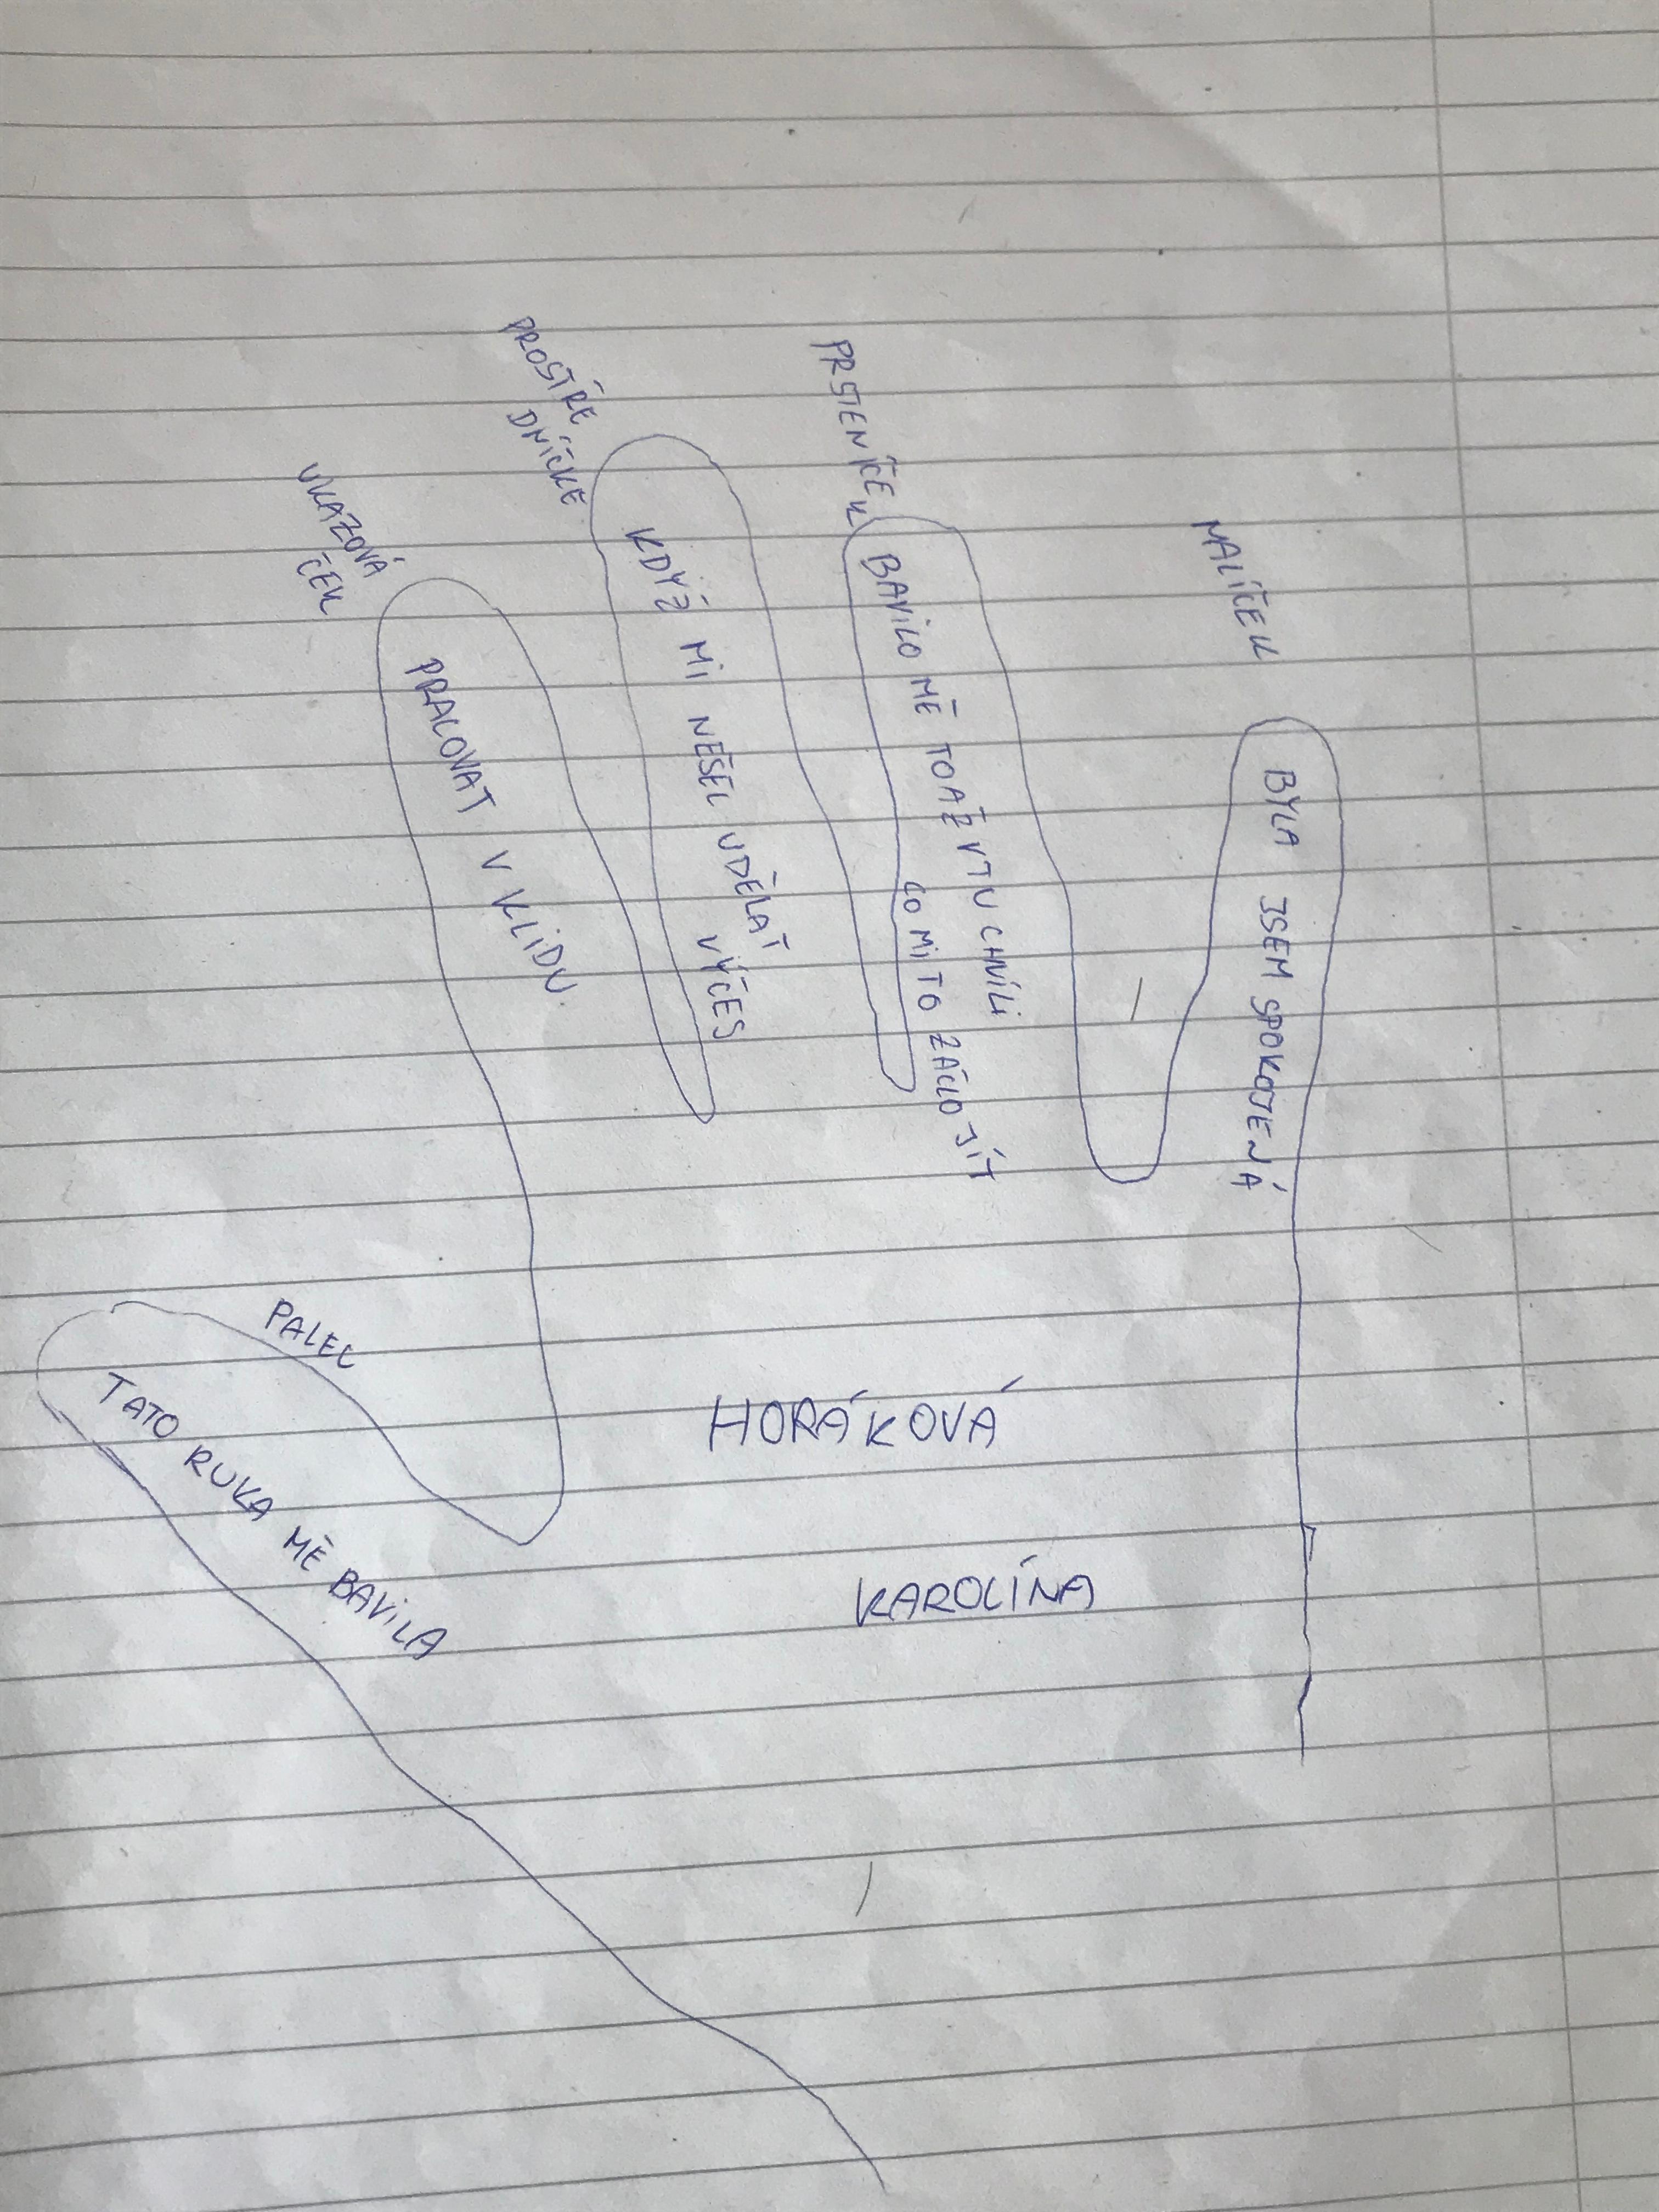 PROSTŘE
DNÍČKE
PRSTENÍČE
K
UKAZOVÁ
ČEK
MALÍČEK
PRACOVAT V KLIDU
KDYŽ MI NĚŠEL UDĚLAT
VÝČES
BAVILO MĚ TO AŽ V TU CHVÍLI
CO MI TO ZAČLO JÍT
BYLA JSEM SPOKOJENÁ
PALEC
TATO RUKA MĚ BAVILA
HORÁKOVÁ
KAROLÍNA